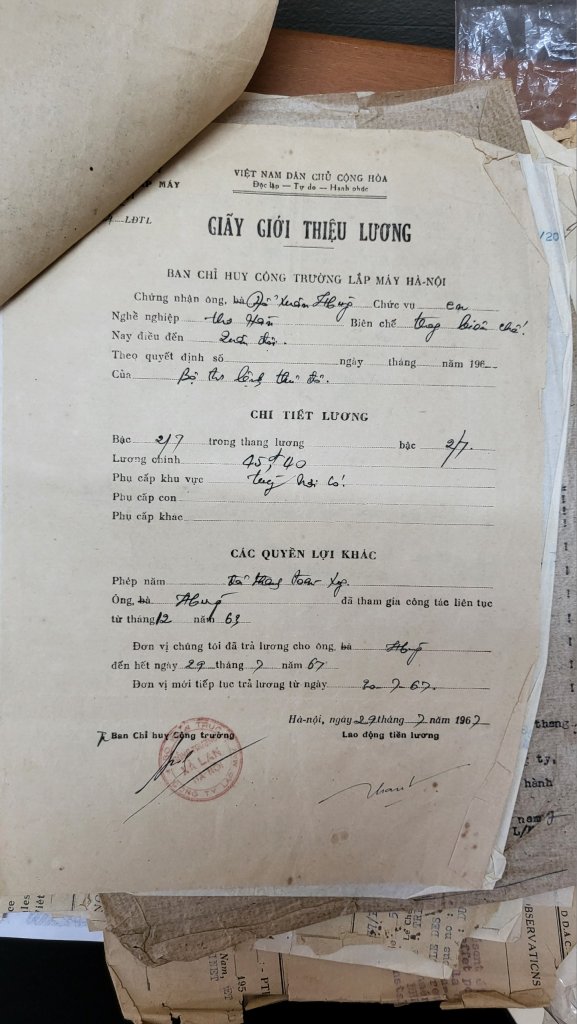 VIỆT NAM DÂN CHỦ CỘNG HÒA
Độc lập — Tự do — Hạnh phúc
ẮP MÁY
LĐTL
GIẤY GIỚI THIỆU LƯƠNG
BAN CHỈ HUY CÔNG TRƯỜNG LẮP MÁY HÀ-NỘI
Chứng nhận ông, bà Xuân Hùng Chức vụ
Nghề nghiệp thợ Hàn Biên chế
Nay điều đến Quân đội.
Theo quyết định số ngày tháng năm 196
Của Bộ tư lệnh thủ đô.
CHI TIẾT LƯƠNG
Bậc 2/7 trong thang lương bậc 2/7.
Lương chính 45đ40
Phụ cấp khu vực tuỳ nơi có.
Phụ cấp con
Phụ cấp khác
CÁC QUYỀN LỢI KHÁC
Phép năm Đã thanh toán xg.
Ông, bà Hùng đã tham gia công tác liên tục
từ tháng 12 năm 63
Đơn vị chúng tôi đã trả lương cho ông, bà Hùng
đến hết ngày 29 tháng 7 năm 67
Đơn vị mới tiếp tục trả lương từ ngày 30-7-67.
Hà-nội, ngày 29 tháng 7 năm 1967
Ban Chỉ huy Công trường Lao động tiền lương
XÀ LAN
HÀ NỘI
CÔNG TY LẮP M
/20
thang
ty,
hành
nam
OBSERVATIONS